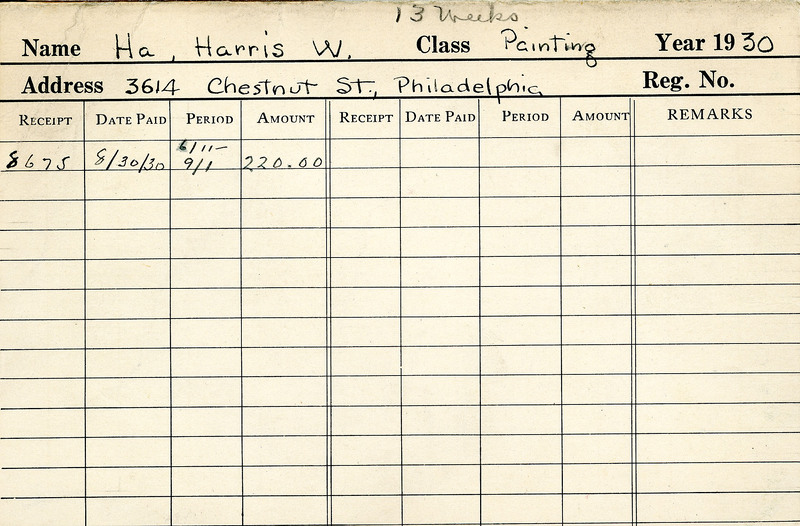 13 Weeks
Name Ha, Harris W. Class Painting Year 1930
Address 3614 Chestnut St., Philadelphia Reg. No.
RECEIPT DATE PAID PERIOD AMOUNT RECEIPT DATE PAID PERIOD AMOUNT REMARKS
8675 8/30/30 6/11- 9/1 220.00